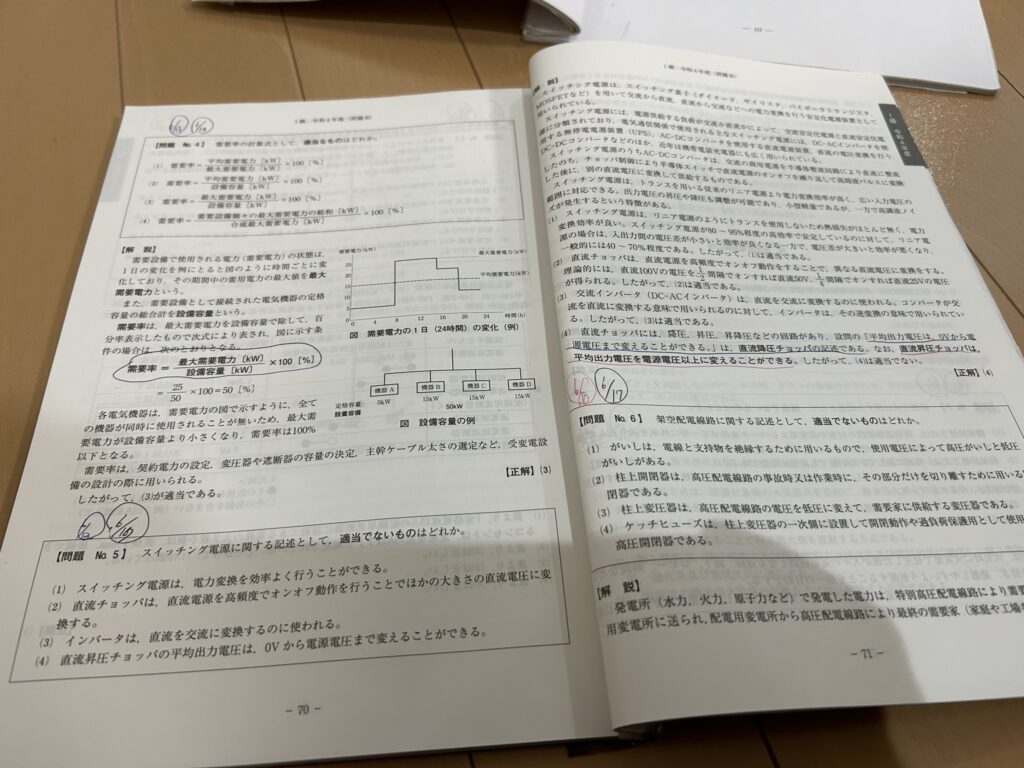 1級／令和4年度（問題Ｂ）
【問題 No.4】 需要率の計算式として，適当なものはどれか。
(1) 需要率＝平均需要電力［kW］／最大需要電力［kW］×100［％］
(2) 需要率＝平均需要電力［kW］／設備容量［kW］×100［％］
(3) 需要率＝最大需要電力［kW］／設備容量［kW］×100［％］
(4) 需要率＝需要設備個々の最大需要電力の総和［kW］／合成最大需要電力［kW］×100［％］
【解 説】
需要設備で使用される電力（需要電力）の状態は，
1日の変化を例にとると図のように時間ごとに変
化しており，その期間中の需用電力の最大値を最大
需要電力という。
また，需要設備として接続された電気機器の定格
容量の総合計を設備容量という。
需要率は，最大需要電力を設備容量で除して，百
分率表示したもので次式により表され，図に示す条
件の場合は，次のとおりとなる。
需要率＝最大需要電力［kW］／設備容量［kW］×100［％］
＝25／50×100＝50［％］
需要電力〔kW〕
最大需要電力〔kW〕
平均需要電力〔kW〕
25
20
15
10
5
0
時間〔h〕
図 需要電力の1日（24時間）の変化（例）
機器A 機器B 機器C 機器D
定格容量 5kW 15kW 15kW 15kW
設備容量 50kW
図 設備容量の例
各電気機器は，需要電力の図で示すように，全て
の機器が同時に使用されることが無いため，最大需
要電力が設備容量より小さくなり，需要率は100％
以下となる。
需要率は，契約電力の設定，変圧器や遮断器の容量の決定，主幹ケーブル太さの選定など，受変電設
備の設計の際に用いられる。
したがって，(3)が適当である。
【正解】(3)
【問題 No.5】 スイッチング電源に関する記述として，適当でないものはどれか。
(1) スイッチング電源は，電力変換を効率よく行うことができる。
(2) 直流チョッパは，直流電源を高頻度でオンオフ動作を行うことでほかの大きさの直流電圧に変
換する。
(3) インバータは，直流を交流に変換するのに使われる。
(4) 直流昇圧チョッパの平均出力電圧は，0Vから電源電圧まで変えることができる。
－70－
1級 令和4年度
解 説】
スイッチング電源は，スイッチング素子（ダイオード，サイリスタ，バイポーラトランジスタ
MOSFETなど）を用いて交流から直流，直流から交流などへの電力変換を行う安定化電源装置として
用いられている。
DC-DCコンバータなどのほか，近年は携帯電話充電器にも広く用いられている。
(1) スイッチング電源は，リニア電源のようにトランスを使用しないため熱損失がほとんど無く，電力
変換効率が良い。スイッチング電源が80～95％程度の高効率で安定しているのに対して，リニア電
源の場合は，入出力間の電圧差が小さいと効率が良くなる一方で，電圧差が大きいと効率が悪くなり，
一般的には40～70％程度である。したがって，(1)は適当である。
(2) 直流チョッパは，直流電源を高頻度でオンオフ動作をすることで，異なる直流電圧に変換をする。
理論的には，直流100Vの電圧を1/2間隔でオンすれば直流50V，1/4間隔でオンすれば直流25Vの電圧
が得られる。したがって，(2)は適当である。
(3) 交流インバータ（DC-ACインバータ）は，直流を交流に変換するのに使われる。コンバータが交
流を直流に変換する意味で用いられるのに対して，インバータは，その逆変換の意味で用いられてい
る。したがって，(3)は適当である。
(4) 直流チョッパには，降圧，昇圧，昇降圧などの回路があり，設問の「平均出力電圧は，0Vから電
源電圧まで変えることができる。」は，直流降圧チョッパの記述である。なお，直流昇圧チョッパは，
平均出力電圧を電源電圧以上に変えることができる。したがって，(4)は適当でない。
【正解】(4)
6/17
【問題 No.6】 架空配電線路に関する記述として，適当でないものはどれか。
(1) がいしは，電線と支持物を絶縁するために用いるもので，使用電圧によって高圧がいしと低圧
がいしがある。
(2) 柱上開閉器は，高圧配電線路の事故時又は作業時に，その部分だけを切り離すために用いる
閉器である。
(3) 柱上変圧器は，高圧配電線路の電圧を低圧に変えて，需要家に供給する変圧器である。
(4) ケッチヒューズは，柱上変圧器の一次側に設置して開閉動作や過負荷保護用として使用
高圧開閉器である。
【解 説】
発電所（水力，火力，原子力など）で発電した電力は，特別高圧配電線路により需要
用変電所に送られ，配電用変電所から高圧配電線路により最終の需要家（家庭や工場
－71－